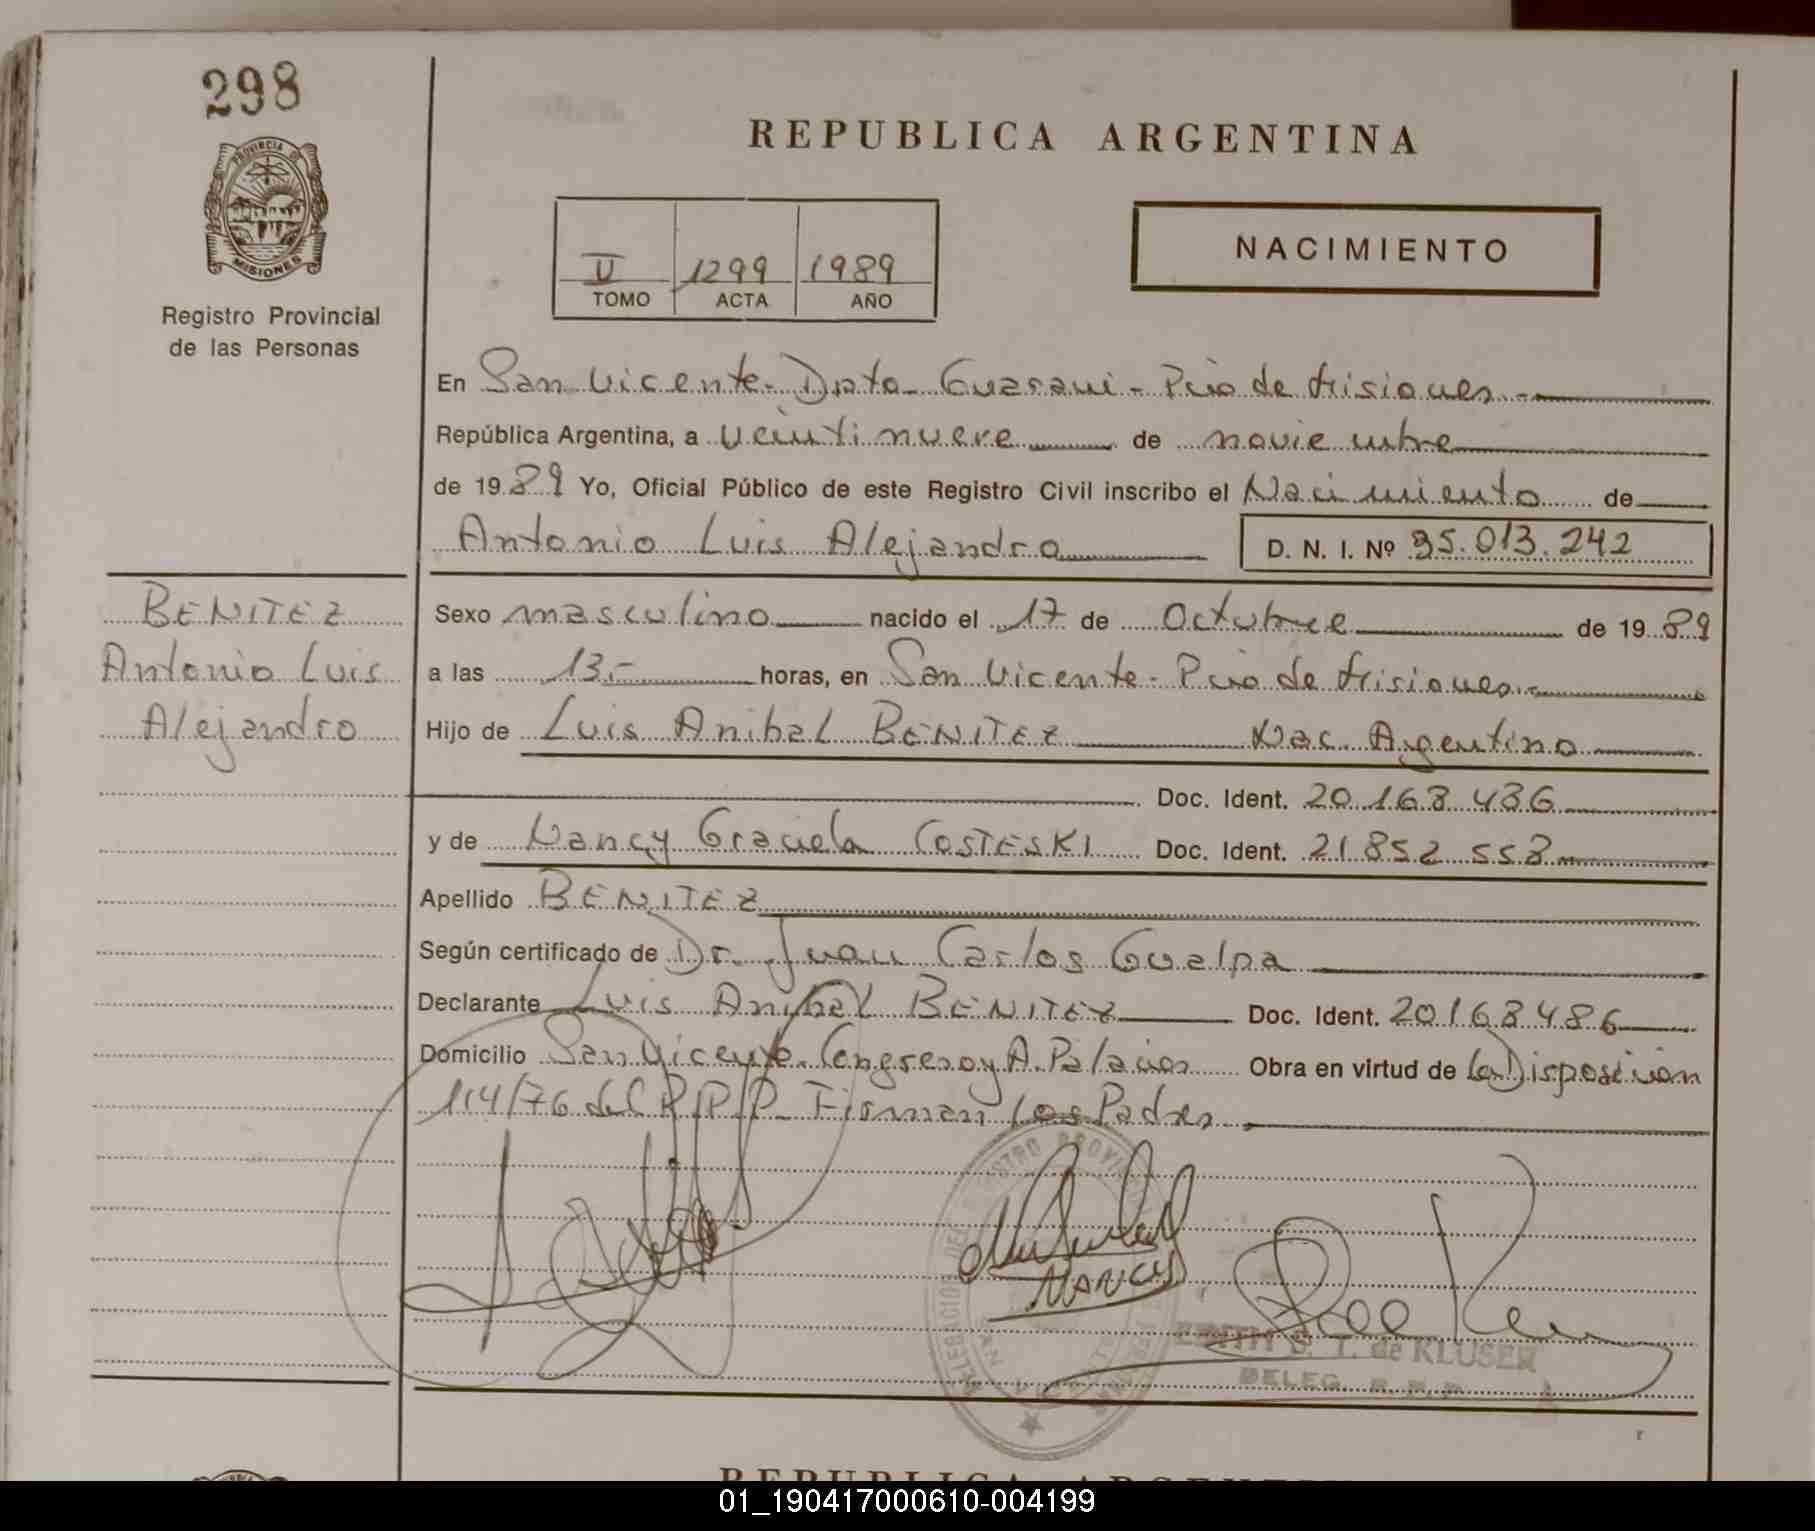 298
PROVINCIA DE
MISIONES
Registro Provincial
de las Personas
REPUBLICA ARGENTINA
II 1299 1989
TOMO ACTA AÑO
NACIMIENTO
En San Vicente - Dpto Guarani - Pcia de Misiones.-
República Argentina, a veinti nueve de noviembre
de 1989 Yo, Oficial Público de este Registro Civil inscribo el Nacimiento de
Antonio Luis Alejandro D. N. I. Nº 35.013.242
BENITEZ
Antonio Luis
Alejandro
Sexo masculino nacido el 17 de Octubre de 1989
a las 13.- horas, en San Vicente - Pcia de Misiones.-
Hijo de Luis Anibal BENITEZ Nac. Argentino
Doc. Ident. 20 168 486
y de Nancy Graciela COSTESKI Doc. Ident. 21 852 558
Apellido BENITEZ
Según certificado de Dr. Juan Carlos Gualpa
Declarante Luis Anibal BENITEZ Doc. Ident. 20168486
Domicilio San Vicente. Congreso y A. Palacios Obra en virtud de la Disposicion
114/76 del R.P.P. Firman los Padres.
NANCY
EDITH S. T. de KLUSER
DELEG. R. P. P.
REPUBLICA ARGENTINA
01_190417000610-004199